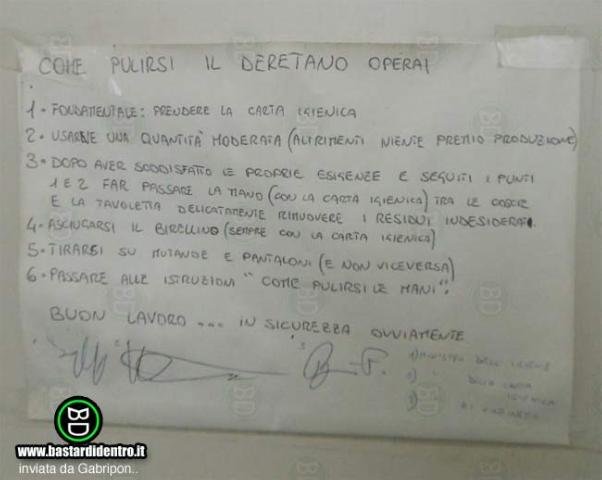 COME PULIRSI IL DERETANO OPERAI
1. FONDAMENTALE: PRENDERE LA CARTA IGIENICA
2. USARNE UNA QUANTITÀ MODERATA (ALTRIMENTI NIENTE PREMIO PRODUZIONE)
3. DOPO AVER SODDISFATTO LE PROPRIE ESIGENZE E SEGUITI I PUNTI
1 E 2 FAR PASSARE LA MANO (CON LA CARTA IGIENICA) TRA LE COSCIE
E LA TAVOLETTA DELICATAMENTE RIMUOVERE I RESIDUI INDESIDERATI.
4. ASCIUGARSI IL BIROLLINO (SEMPRE CON LA CARTA IGIENICA)
5. TIRARSI SU MUTANDE E PANTALONI (E NON VICEVERSA)
6. PASSARE ALLE ISTRUZIONI "COME PULIRSI LE MANI".
BUON LAVORO... IN SICUREZZA OVVIAMENTE
1) MINISTRO DELL'IGIENE
2) " DELLA CARTA IGIENICA
3) "
BD
www.bastardidentro.it
inviata da Gabripon..